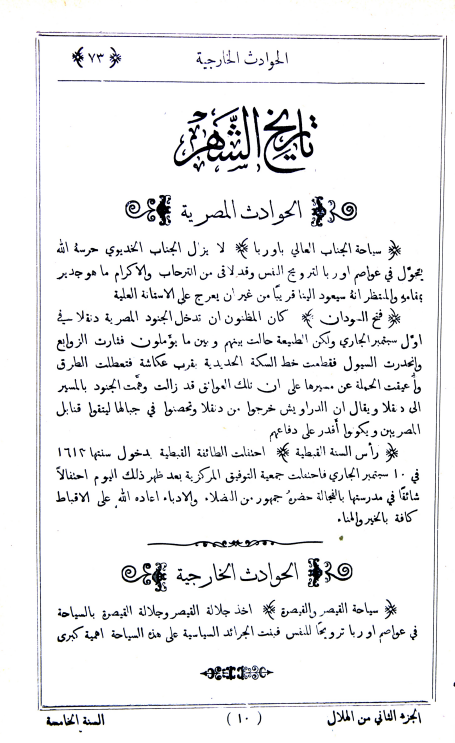 الحوادث الخارجية ﴿٧٣﴾
تاريخ الشهر
الحوادث المصرية
﴿ سياحة الجناب العالي باوربا ﴾ لا يزال الجناب الخديوي حرسهُ الله
يتجوّل في عواصم اوربا لترويح النفس وقد لاقى من الترحاب والاكرام ما هو جدير
بمقامهِ والمنتظر انهُ سيعود الينا قريبًا من غير ان يعرج على الاستانة العلية
﴿ فتح السودان ﴾ كان المظنون ان تدخل الجنود المصرية دنقلا في
اول سبتمبر الجاري ولكن الطبيعة حالت بينهم وبين ما يؤملون فثارت الزوابع
وانحدرت السيول فقطعت خط السكة الحديدية بقرب عكاشة فتعطلت الطرق
وأعيقت الحملة عن مسيرها على ان تلك العوائق قد زالت وهمَّت الجنود بالمسير
الى دنقلا ويقال ان الدراويش خرجوا من دنقلا وتحصنوا في جبالها ليتقوا قنابل
المصريين ويكونوا أقدر على دفاعهم
﴿ رأس السنة القبطية ﴾ احتفلت الطائفة القبطية بدخول سنتها ١٦١٣
في ١٠ سبتمبر الجاري فاحتفلت جمعية التوفيق المركزية بعد ظهر ذلك اليوم احتفالاً
شائقًا في مدرستها بالفجالة حضرهُ جمهور من الفضلاء والادباء اعاده الله على الاقباط
كافة بالخير والهناء
الحوادث الخارجية
﴿ سياحة القيصر والقيصرة ﴾ اخذ جلالة القيصر وجلالة القيصرة بالسياحة
في عواصم اوربا ترويحًا للنفس فبنت الجرائد السياسية على هذه السياحة اهمية كبرى
الجزء الثاني من الهلال (١٠) السنة الخامسة